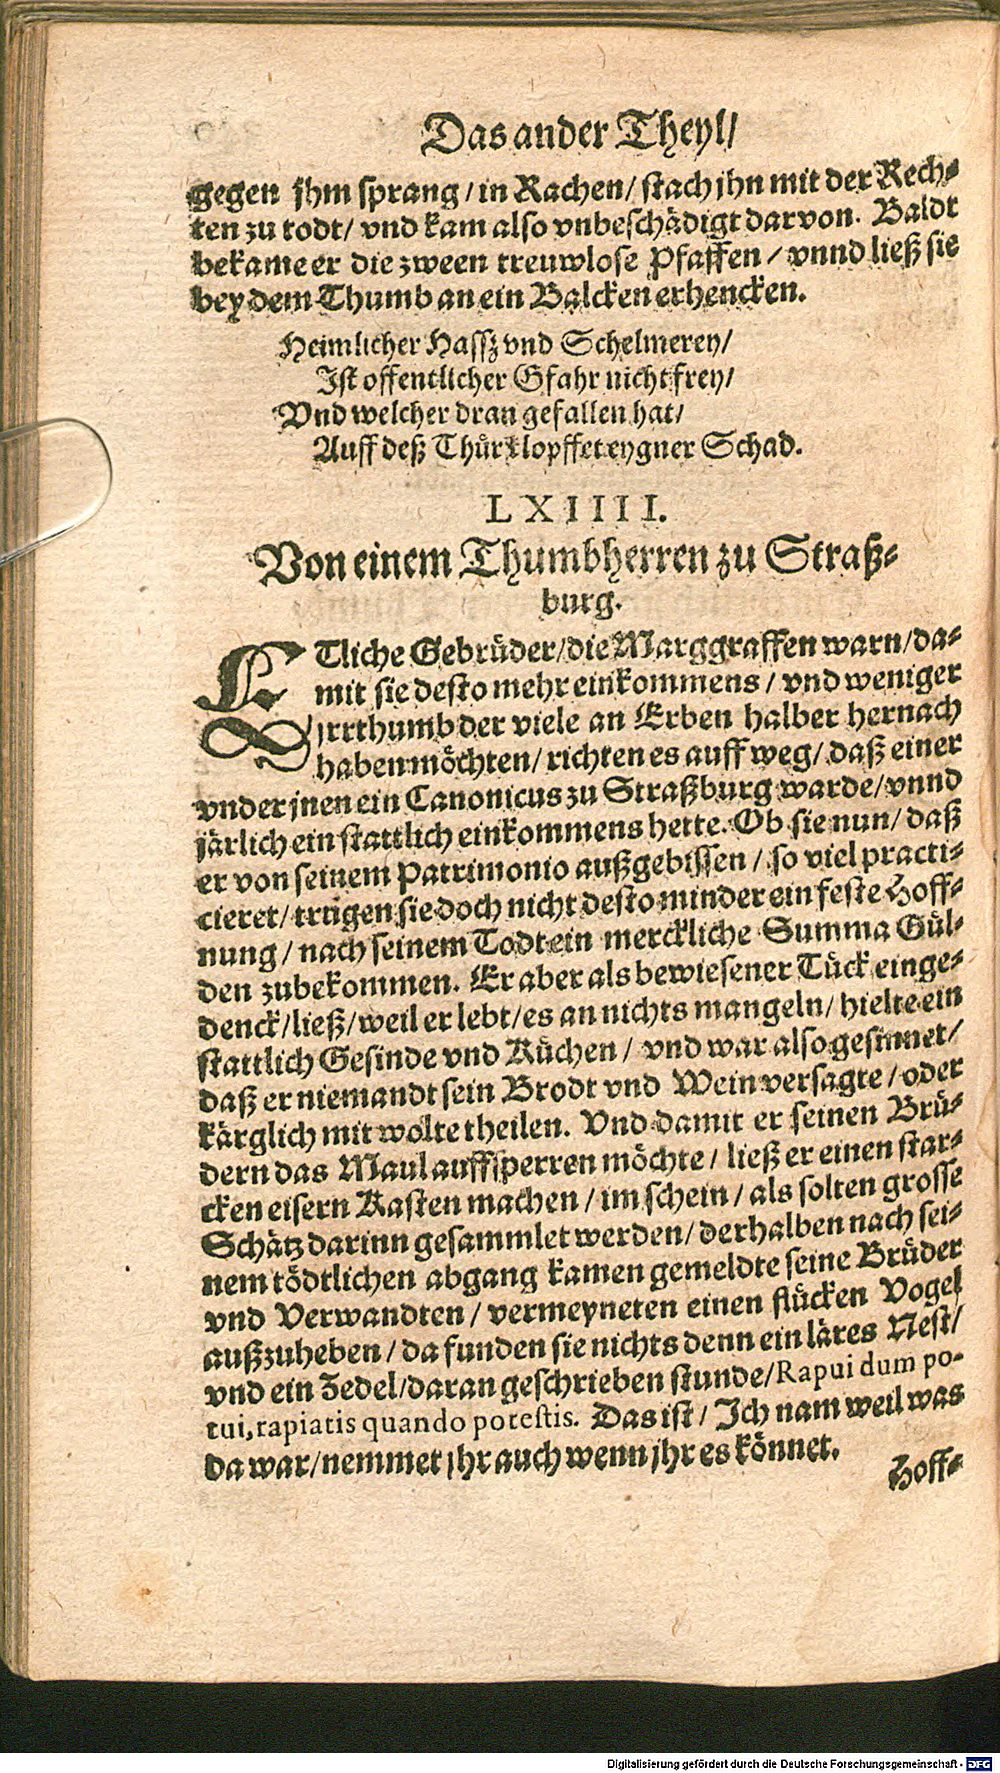 Das ander Theyl/
gegen jhm sprang / in Rachen / stach jhn mit der Rech⸗
ten zu todt / vnd kam also vnbeschädigt darvon. Baldt
bekame er die zween treuwlose Pfaffen / vnnd ließ sie
bey dem Thumb an ein Balcken erhencken.
Heimlicher Hassz vnd Schelmerey/
Ist offentlicher Gfahr nicht frey/
Vnd welcher dran gefallen hat/
Auff deß Thür klopffet eygner Schad.
LXIIII.
Von einem Thumbherren zu Straß⸗
burg.
ETliche Gebrüder / die Marggraffen warn / da⸗
mit sie desto mehr einkommens / vnd weniger
jrrthumb der viele an Erben halber hernach
haben möchten / richten es auff weg / daß einer
vnder jnen ein Canonicus zu Straßburg warde / vnnd
järlich ein stattlich einkommens hette. Ob sie nun / daß
er von seinem Patrimonio außgebissen / so viel practi⸗
cieret / trugen sie doch nicht desto minder ein feste Hoff⸗
nung / nach seinem Todt ein merckliche Summa Gül⸗
den zubekommen. Er aber als bewiesener Tück einge⸗
denck / ließ / weil er lebt / es an nichts mangeln / hielte ein
stattlich Gesinde vnd Küchen / vnd war also gesinnet /
daß er niemandt sein Brodt vnd Wein versagte / oder
kärglich mit wolte theilen. Vnd damit er seinen Brü⸗
dern das Maul auffsperren möchte / ließ er einen star⸗
cken eisern Kasten machen / im schein / als solten grosse
Schätz darinn gesammlet werden / derhalben nach sei⸗
nem tödtlichen abgang kamen gemeldte seine Brüder
vnd Verwandten / vermeyneten einen flücken Vogel
außzuheben / da funden sie nichts denn ein läres Nest /
vnd ein Zedel / daran geschrieben stunde / Rapui dum po-
tui, rapiatis quando potestis. Das ist / Ich nam weil was
da war / nemmet jhr auch wenn jhr es könnet.
Hoff⸗
Digitalisierung gefördert durch die Deutsche Forschungsgemeinschaft - DFG